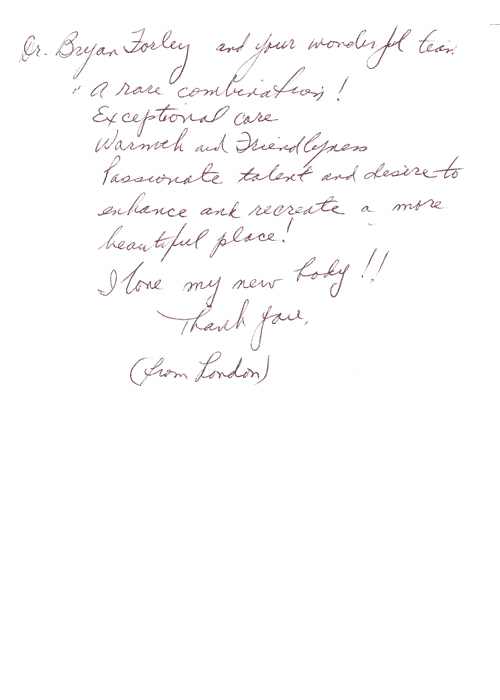 Dr. Bryan Forley and your wonderful team
" A rare combination!
Exceptional care
Warmth and Friendlyness
Passionate talent and desire to
enhance and recreate a more
beautiful place!
I love my new body!!
Thank you,
(from London)